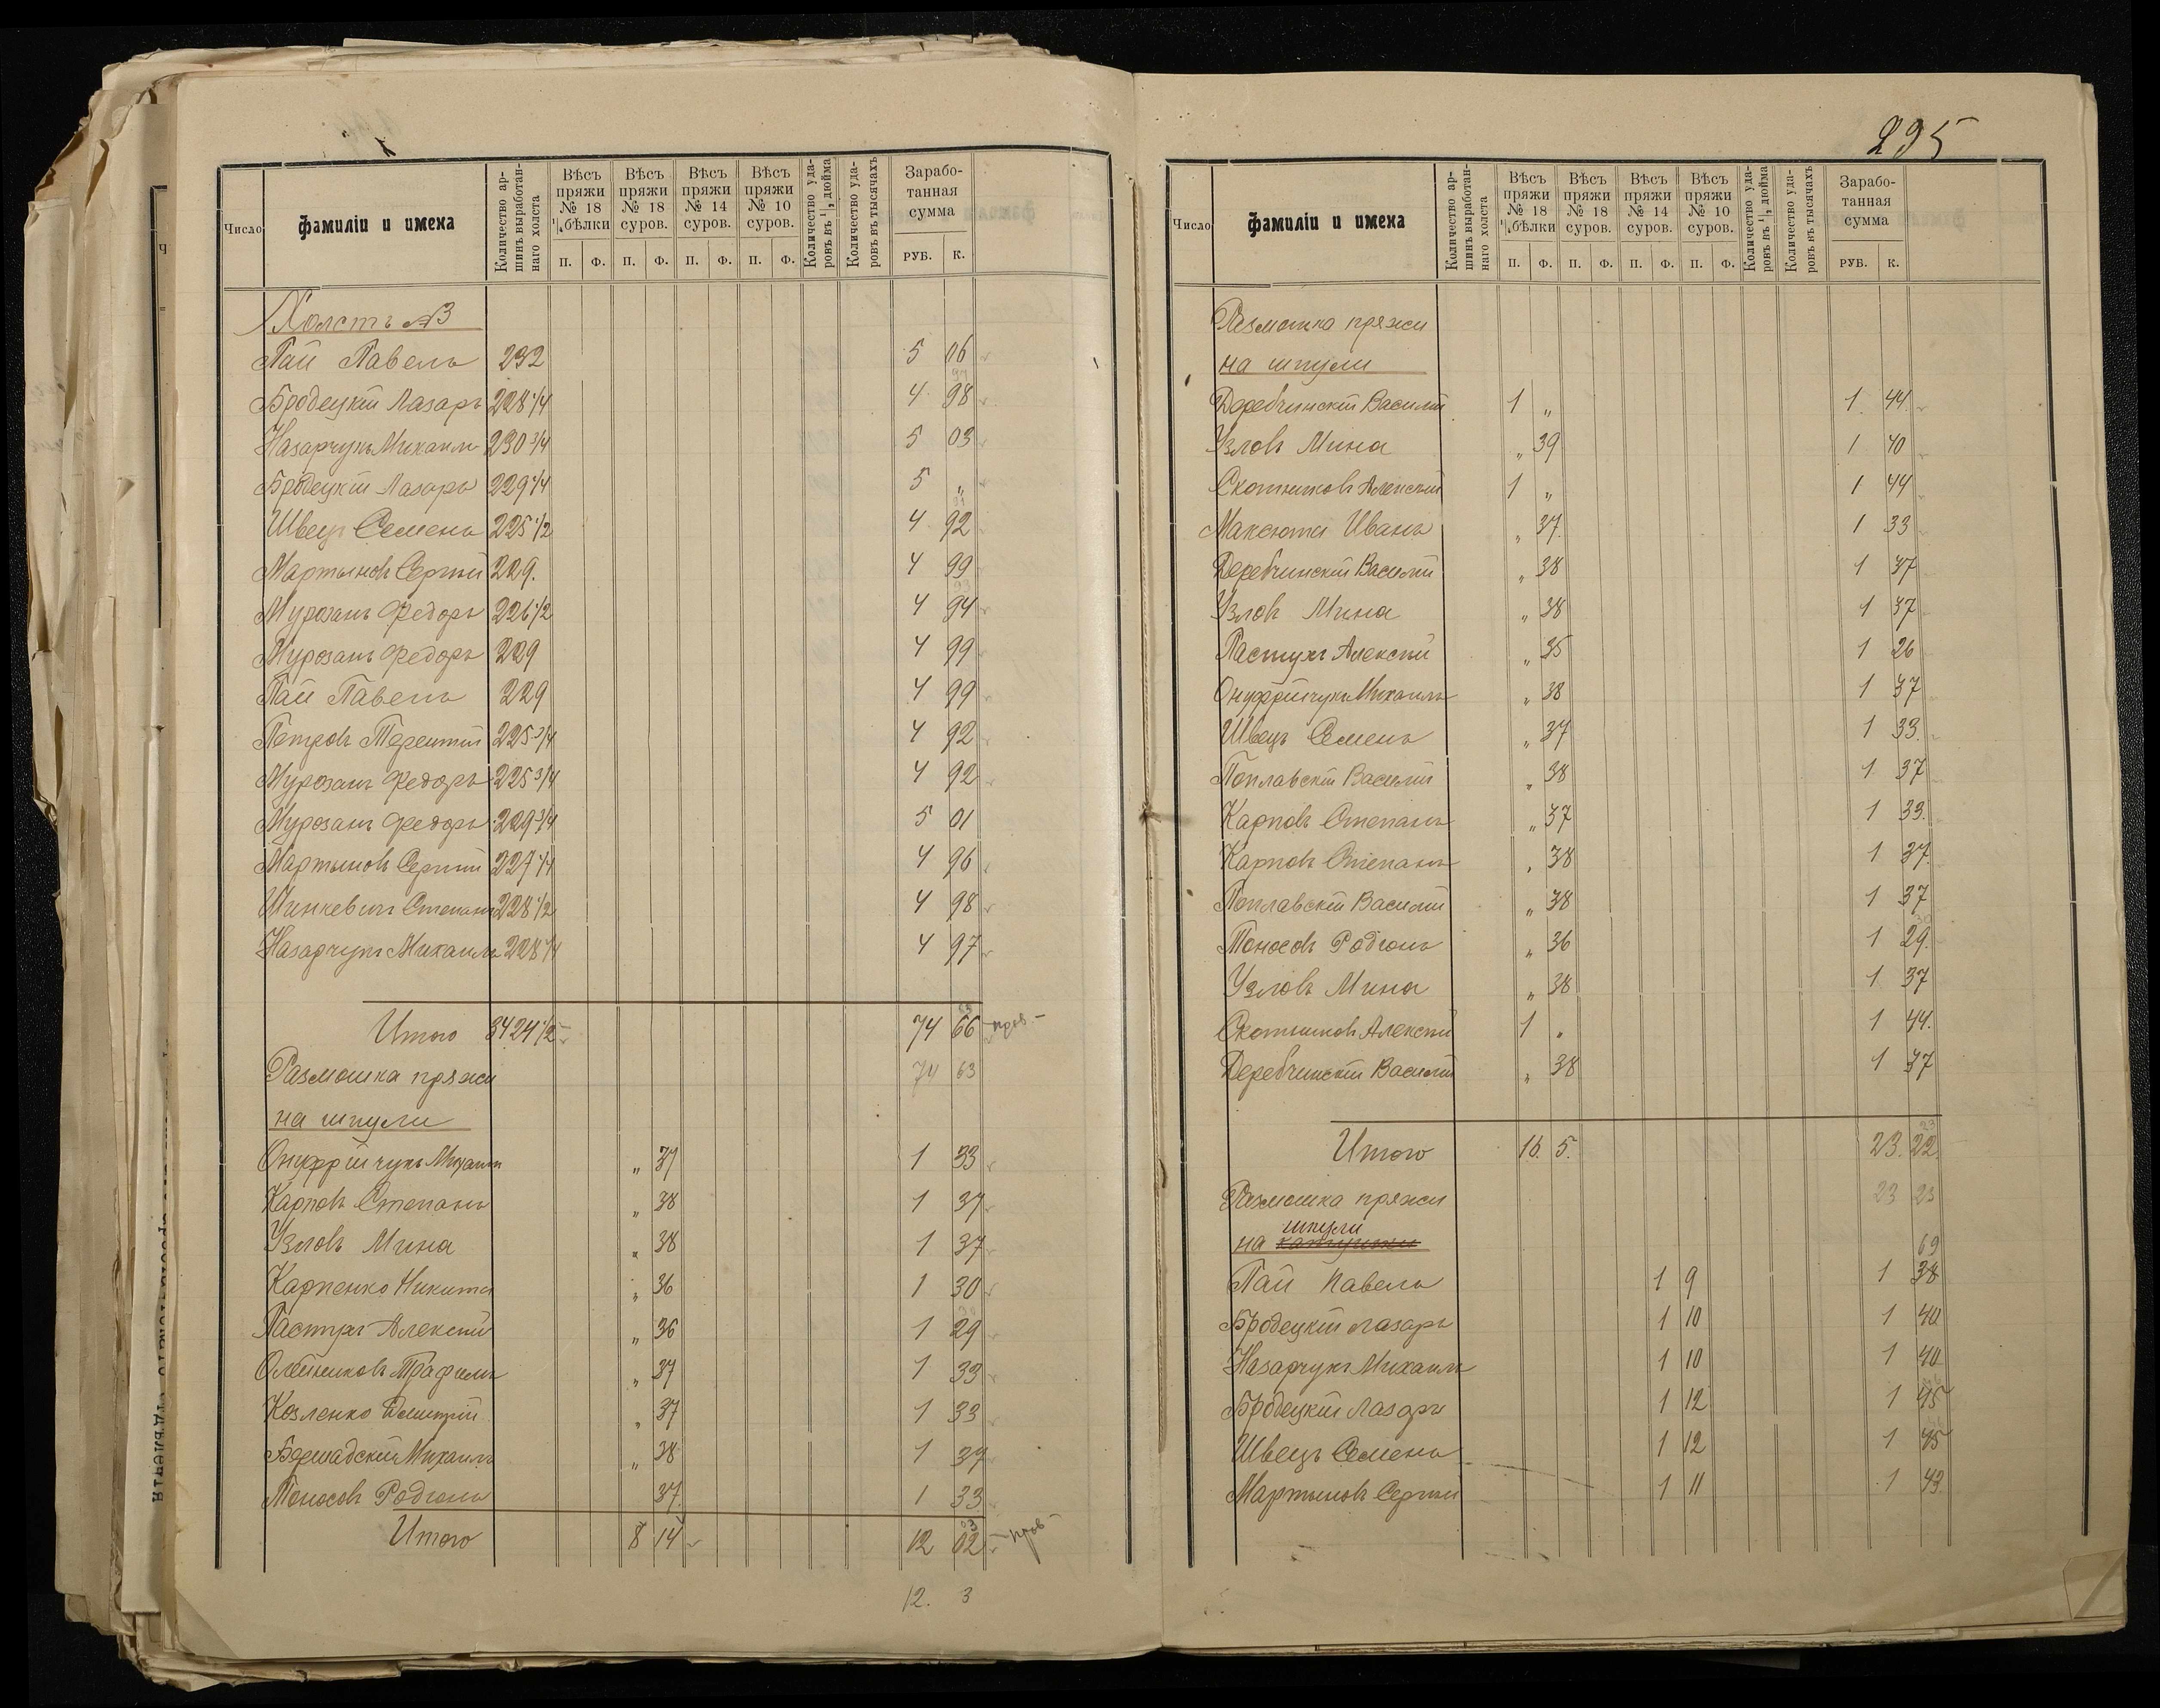 Число Фамиліи и имена Количество аршинъ выработаннаго холста Вѣсъ пряжи № 18 ¼ бѣлки П. Ф. Вѣсъ пряжи № 18 суров. П. Ф. Вѣсъ пряжи № 14 суров. П. Ф. Вѣсъ пряжи № 10 суров. П. Ф. Количество ударовъ въ ¼ дюйма Количество ударовъ въ тысячахъ Заработанная сумма РУБ. К.
Холстъ №3
Пай Павелъ 232 5 06
Бродецкій Лазарь 228 1/4 4 98
Назарчукъ Михаилъ 230 3/4 5 03
Бродецкій Лазарь 229 1/4 5 „
Швецъ Семенъ 225 1/2 4 92
Мартыновъ Сергій 229. 4 99
Мурозанъ Федоръ 226 1/2 4 94
Мурозанъ Федоръ 229 4 99
Пай Павелъ 229 4 99
Петровъ Терентій 225 3/4 4 92
Мурозанъ Федоръ 225 3/4 4 92
Мурозанъ Федоръ 229 3/4 5 01
Мартыновъ Сергій 227 1/4 4 96
Шинкевичъ Степанъ 228 1/2 4 98
Назарчукъ Михаилъ 228 1/4 4 97
Итого 3424 1/2 74 66 пров
Размотка пряжи 74 63
на шпули
Онуфрійчукъ Михаилъ „ 37 1 33
Карповъ Степанъ „ 38 1 37
Узловъ Мина „ 38 1 37
Карпенко Никита „ 36 1 30
Пастухъ Алексѣй „ 36 1 29
Олейниковъ Трафимъ „ 37 1 33
Козленко Дмитрій „ 37 1 33
Бершадскій Михаилъ „ 38 1 37
Поносовъ Родіонъ 37 1 33
Итого 8 14 12 02 пров
12. 3
295
Число Фамиліи и имена Количество аршинъ выработаннаго холста Вѣсъ пряжи № 18 ¼ бѣлки П. Ф. Вѣсъ пряжи № 18 суров. П. Ф. Вѣсъ пряжи № 14 суров. П. Ф. Вѣсъ пряжи № 10 суров. П. Ф. Количество ударовъ въ ¼ дюйма Количество ударовъ въ тысячахъ Заработанная сумма РУБ. К.
Размотка пряжи
на шпули
Деребчинскій Василій 1 „ 1 44
Узловъ Мина „ 39 1 40
Скотниковъ Алексѣй 1 „ 1 44
Максюта Иванъ „ 37. 1 33
Деребчинскій Василій „ 38 1 37
Узловъ Мина „ 38 1 37
Пастухъ Алексѣй „ 35 1 26
Онуфрійчукъ Михаилъ „ 38 1 37
Швецъ Семенъ „ 37 1 33.
Поплавскій Василій „ 38 1 37
Карповъ Степанъ „ 37 1 33.
Карповъ Степанъ „ 38 1 37.
Поплавскій Василій „ 38 1 37
Поносовъ Родіонъ „ 36 1 29.
Узловъ Мина „ 38 1 37
Скотниковъ Алексѣй 1 „ 1 44.
Деребчинскій Василій „ 38 1 37
Итого 16. 5. 23. 22.
Размотка пряжи 23 23
шпули
на катушки 69
Пай Павелъ 1 9 1 38
Бродецкій Лазарь 1 10 1 40
Назарчукъ Михаилъ 1 10 1 40
Бродецкій Лазарь 1 12 1 45
Швецъ Семенъ 1 12 1 45
Мартыновъ Сергій 1 11 1 43